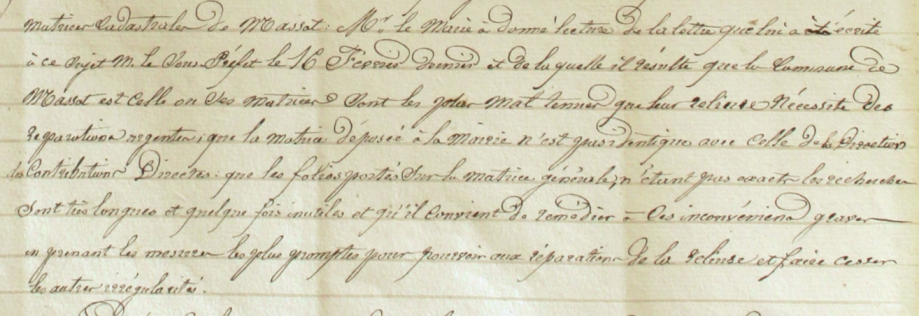 matrices Cadastrales de Massat: Mr. le Maire a donné lecture de la lettre que lui a été écrite
à ce sujet M. le Sous Préfet le 16 Février dernier et de laquelle il résulte que la Commune de
Massat est celle ou Les matrices Sont les plus mal tenues que leur relieuse Nécessite des
réparations urgentes; que la matrice déposée à la Mairie n'est pas identique avec celle de la Direction
des Contributions Directes: que les folios portés Sur la matrice générale, n'étant pas exacts les recherches
Sont très longues et quelque fois inutiles et qu'il Convient de remédier à Ces inconvéniens graves
en prenant les mesures les plus promptes pour pourvoir aux réparations de la reliuse et faire cesser
les autres irrégularités.